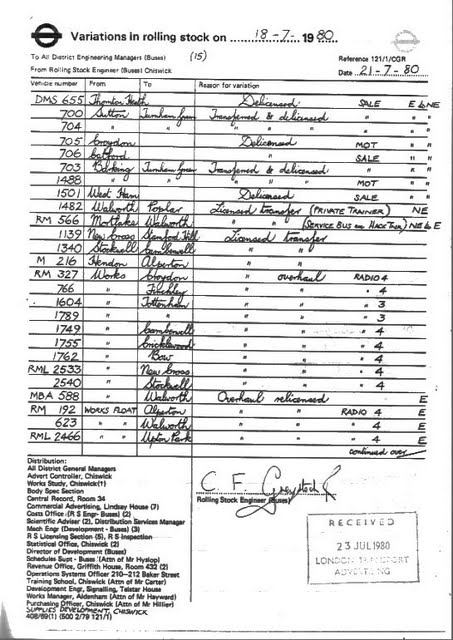 Variations in rolling stock on 18-7-1980
To All District Engineering Managers (Buses) (15) Reference 121/1/CGR
From Rolling Stock Engineer (Buses) Chiswick Date 21-7-80
Vehicle number From To Reason for variation
DMS 655 Thornton Heath Delicensed SALE E to NE
700 Sutton Turnham Green Transferred & delicensed " " "
704 " " " " " "
705 Croydon Delicensed MOT " "
706 Catford " SALE " "
703 Barking Turnham Green Transferred & delicensed " " "
1488 " " " MOT " "
1501 West Ham Delicensed SALE " "
1482 Walworth Poplar Licensed transfer (PRIVATE TRAINER) NE
RM 566 Mortlake Walworth " " (SERVICE BUS NE to E
1139 New Cross Stamford Hill Licensed transfer
1340 Stockwell Camberwell " "
M 216 Hendon Alperton " "
RM 327 Works Croydon " overhaul RADIO 4
766 " Finchley " " " 4
1604 " Tottenham " " " 3
1789 " " " " " 3
1749 " Camberwell " " " 4
1755 " Cricklewood " " " 4
1762 " Bow " " " 4
RML 2533 " New Cross " " " 4
2540 " Stockwell " " " 4
MBA 588 " Walworth Overhaul relicensed E
RM 192 WORKS FLOAT Alperton " " RADIO 4 E
623 " " Walworth " " " 4 E
RML 2466 " " Upton Park " " " 4 E
continued over
Distribution:
All District General Managers
Advert Controller, Chiswick
Works Study, Chiswick(1)
Body Spec Section
Central Record, Room 34
Commercial Advertising, Lindsey House (7)
Costs Office (R S Engr- Buses) (2)
Scientific Adviser (2), Distribution Services Manager
Mech Engr (Development - Buses) (3)
R S Licensing Section (5), R S Inspection
Statistical Office, Chiswick
Director of Development (Buses)
Schedules Supt - Buses (Attn of Mr Hyslop)
Revenue Office, Griffith House, Room 432 (2)
Operations Systems Officer 210-212 Baker Street
Training School, Chiswick (Attn of Mr Carter)
Development Engr, Signalling, Telstar House
Works Manager, Aldenham (Attn of Mr Hayward)
Purchasing Officer, Chiswick (Attn of Mr Hillier)
SUPPLIES DEVELOPMENT, CHISWICK
408/69(1) (500 2/79 121/1)
C. F. Greystock
Rolling Stock Engineer (Buses)
RECEIVED
23 JUL 1980
LONDON TRANSPORT
ADVERTISING